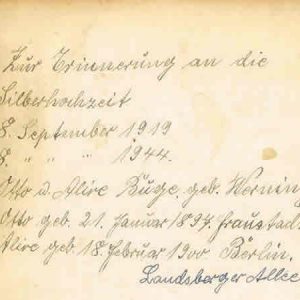 Zur Erinnerung an die
Silberhochzeit
8. September 1919
8. " " " 1944.
Otto u. Alice Büge, geb. Werning
Otto geb. 21. Januar 1897 Fraustadt
Alice geb. 18. Februar 1900 Berlin.
Landsberger Allee